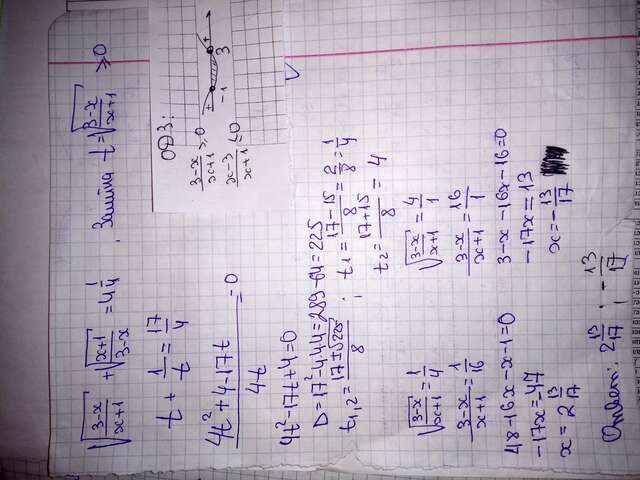 √(3-x)/(x+1) + √(x+1)/(3-x) = 4 1/4 , Заміна t = √(3-x)/(x+1) ≥ 0
t + 1/t = 17/4
ОДЗ:
(3-x)/(x+1) ≥ 0
(x-3)/(x+1) ≤ 0
+ -1 3 +
(4t² + 4 - 17t)/4t = 0
4t² - 17t + 4 = 0
D = 17² - 4·4·4 = 289 - 64 = 225
t₁,₂ = (17 ± √225)/8 ; t₁ = (17-15)/8 = 2/8 = 1/4
t₂ = (17+15)/8 = 4
√(3-x)/(x+1) = 1/4
(3-x)/(x+1) = 1/16
48 - 16x - x - 1 = 0
-17x = -47
x = 2 13/17
√(3-x)/(x+1) = 4/1
(3-x)/(x+1) = 16/1
3 - x - 16x - 16 = 0
-17x = 13
x = -13/17
Ответ: 2 13/17 ; -13/17